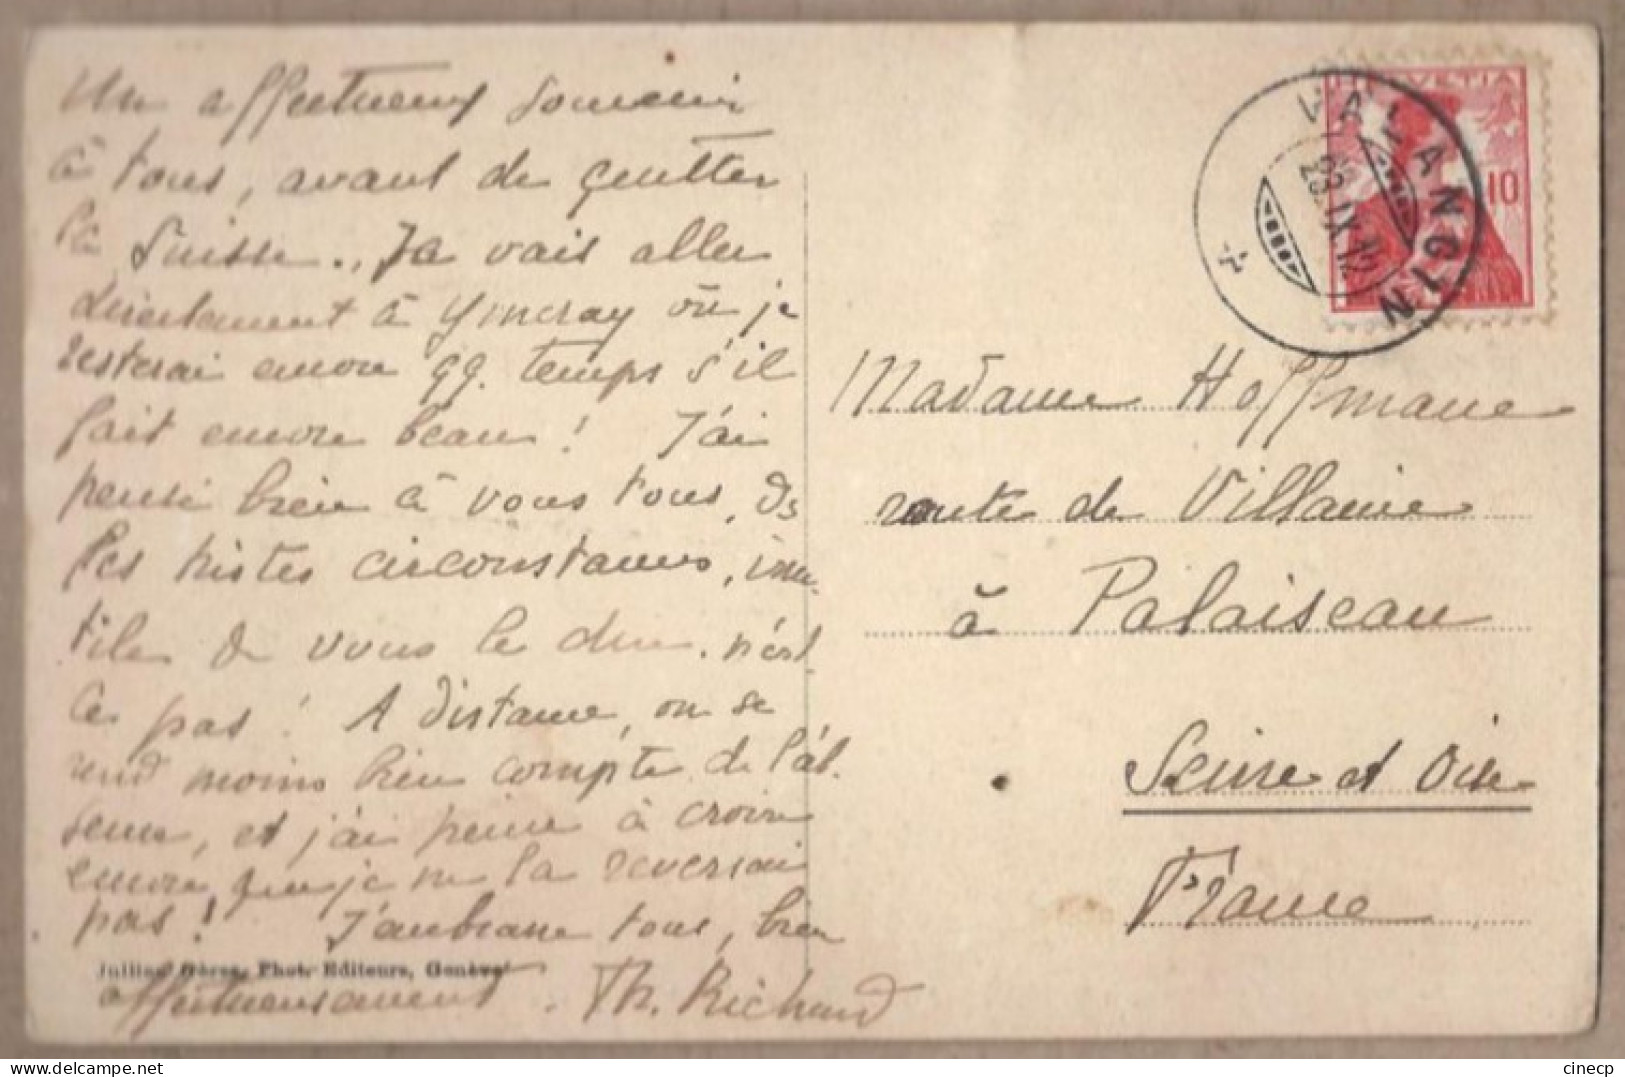 Un affectueux souvenir
à tous, avant de quitter
la Suisse. Je vais aller
directement à Ymeray où je
resterai encore qq. temps s'il
fait encore beau! J'ai
pensé bien à vous tous, ds
les tristes circonstances, inu-
tile de vous le dire. n'est
ce pas! A distance, on se
rend moins bien compte de l'ab-
sence, et j'ai peine à croire
encore que je ne la reverrai
pas! J'embrasse tous, bien
affectueusement. Th. Richard
Jullien Frères, Phot. Editeurs, Genève
HELVETIA
10
VALANGIN
23 IX 12
Madame Hoffmann
route de Villaine
à Palaiseau
Seine et Oise
France
cinecp